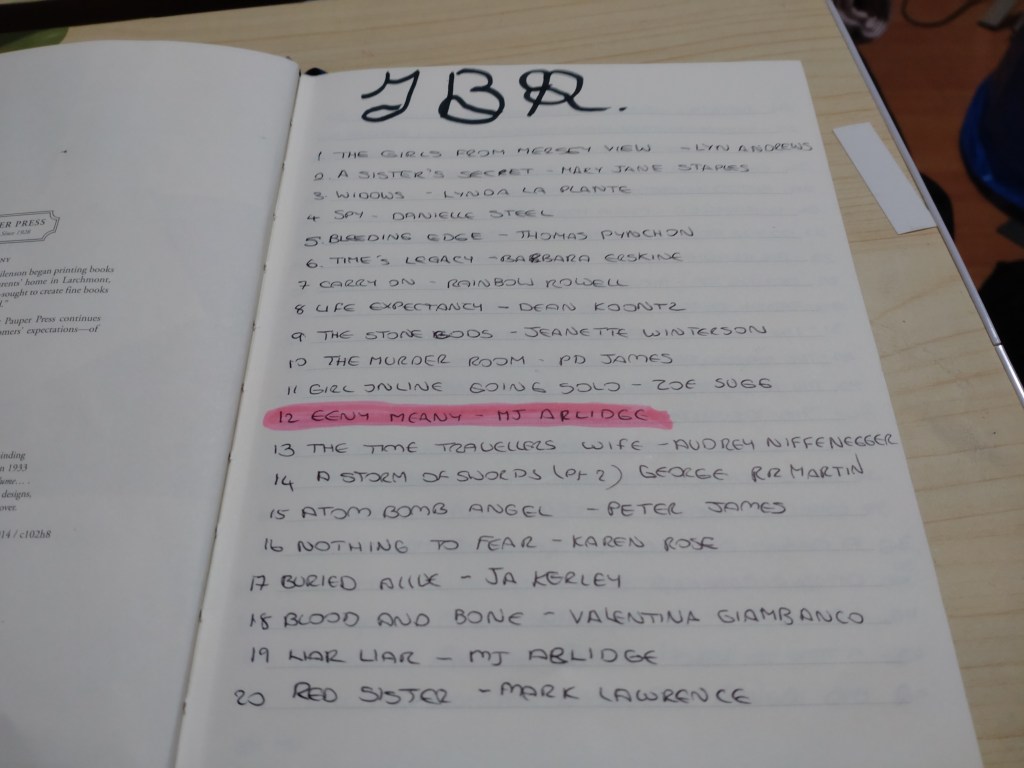 ER PRESS
Since 1928
NY
ilenson began printing books
rents' home in Larchmont,
sought to create fine books
."
Pauper Press continues
omers' expectations—of
inding
n 1933
ome. . .
designs.
over.
14 / c102h8
TBR.
1 THE GIRLS FROM MERSEY VIEW - LYN ANDREWS
2 A SISTER'S SECRET - MARY JANE STAPLES
3 WIDOWS - LYNDA LA PLANTE
4 SPY - DANIELLE STEEL
5. BLEEDING EDGE - THOMAS PYNCHON
6. TIME'S LEGACY - BARBARA ERSKINE
7 CARRY ON - RAINBOW ROWELL
8 LIFE EXPECTANCY - DEAN KOONTZ
9 THE STONE GODS - JEANETTE WINTERSON
10 THE MURDER ROOM - PD JAMES
11 GIRL ONLINE GOING SOLO - ZOE SUGG
12 EENY MEANY - MJ ARLIDGE
13 THE TIME TRAVELLERS WIFE - AUDREY NIFFENEGGER
14 A STORM OF SWORDS (Pt 2) GEORGE RR MARTIN
15 ATOM BOMB ANGEL - PETER JAMES
16 NOTHING TO FEAR - KAREN ROSE
17 BURIED ALIVE - JA KERLEY
18 BLOOD AND BONE - VALENTINA GIAMBANCO
19 LIAR LIAR - MJ ARLIDGE
20 RED SISTER - MARK LAWRENCE